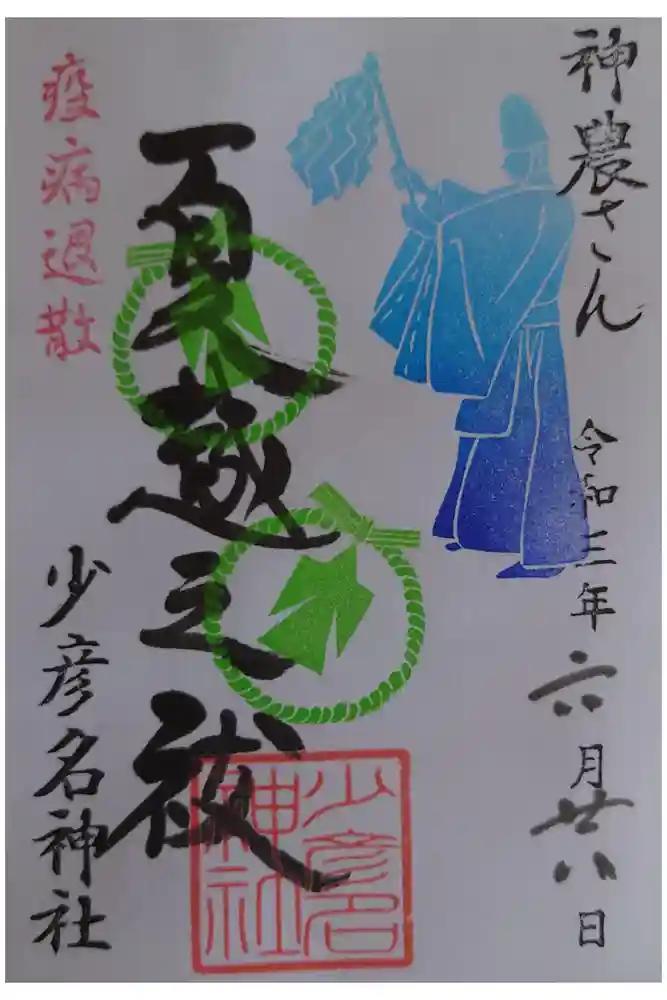 神農さん 令和三年 六月廿八日
夏越之祓
疫病退散
少彦名神社
少彦名
神社